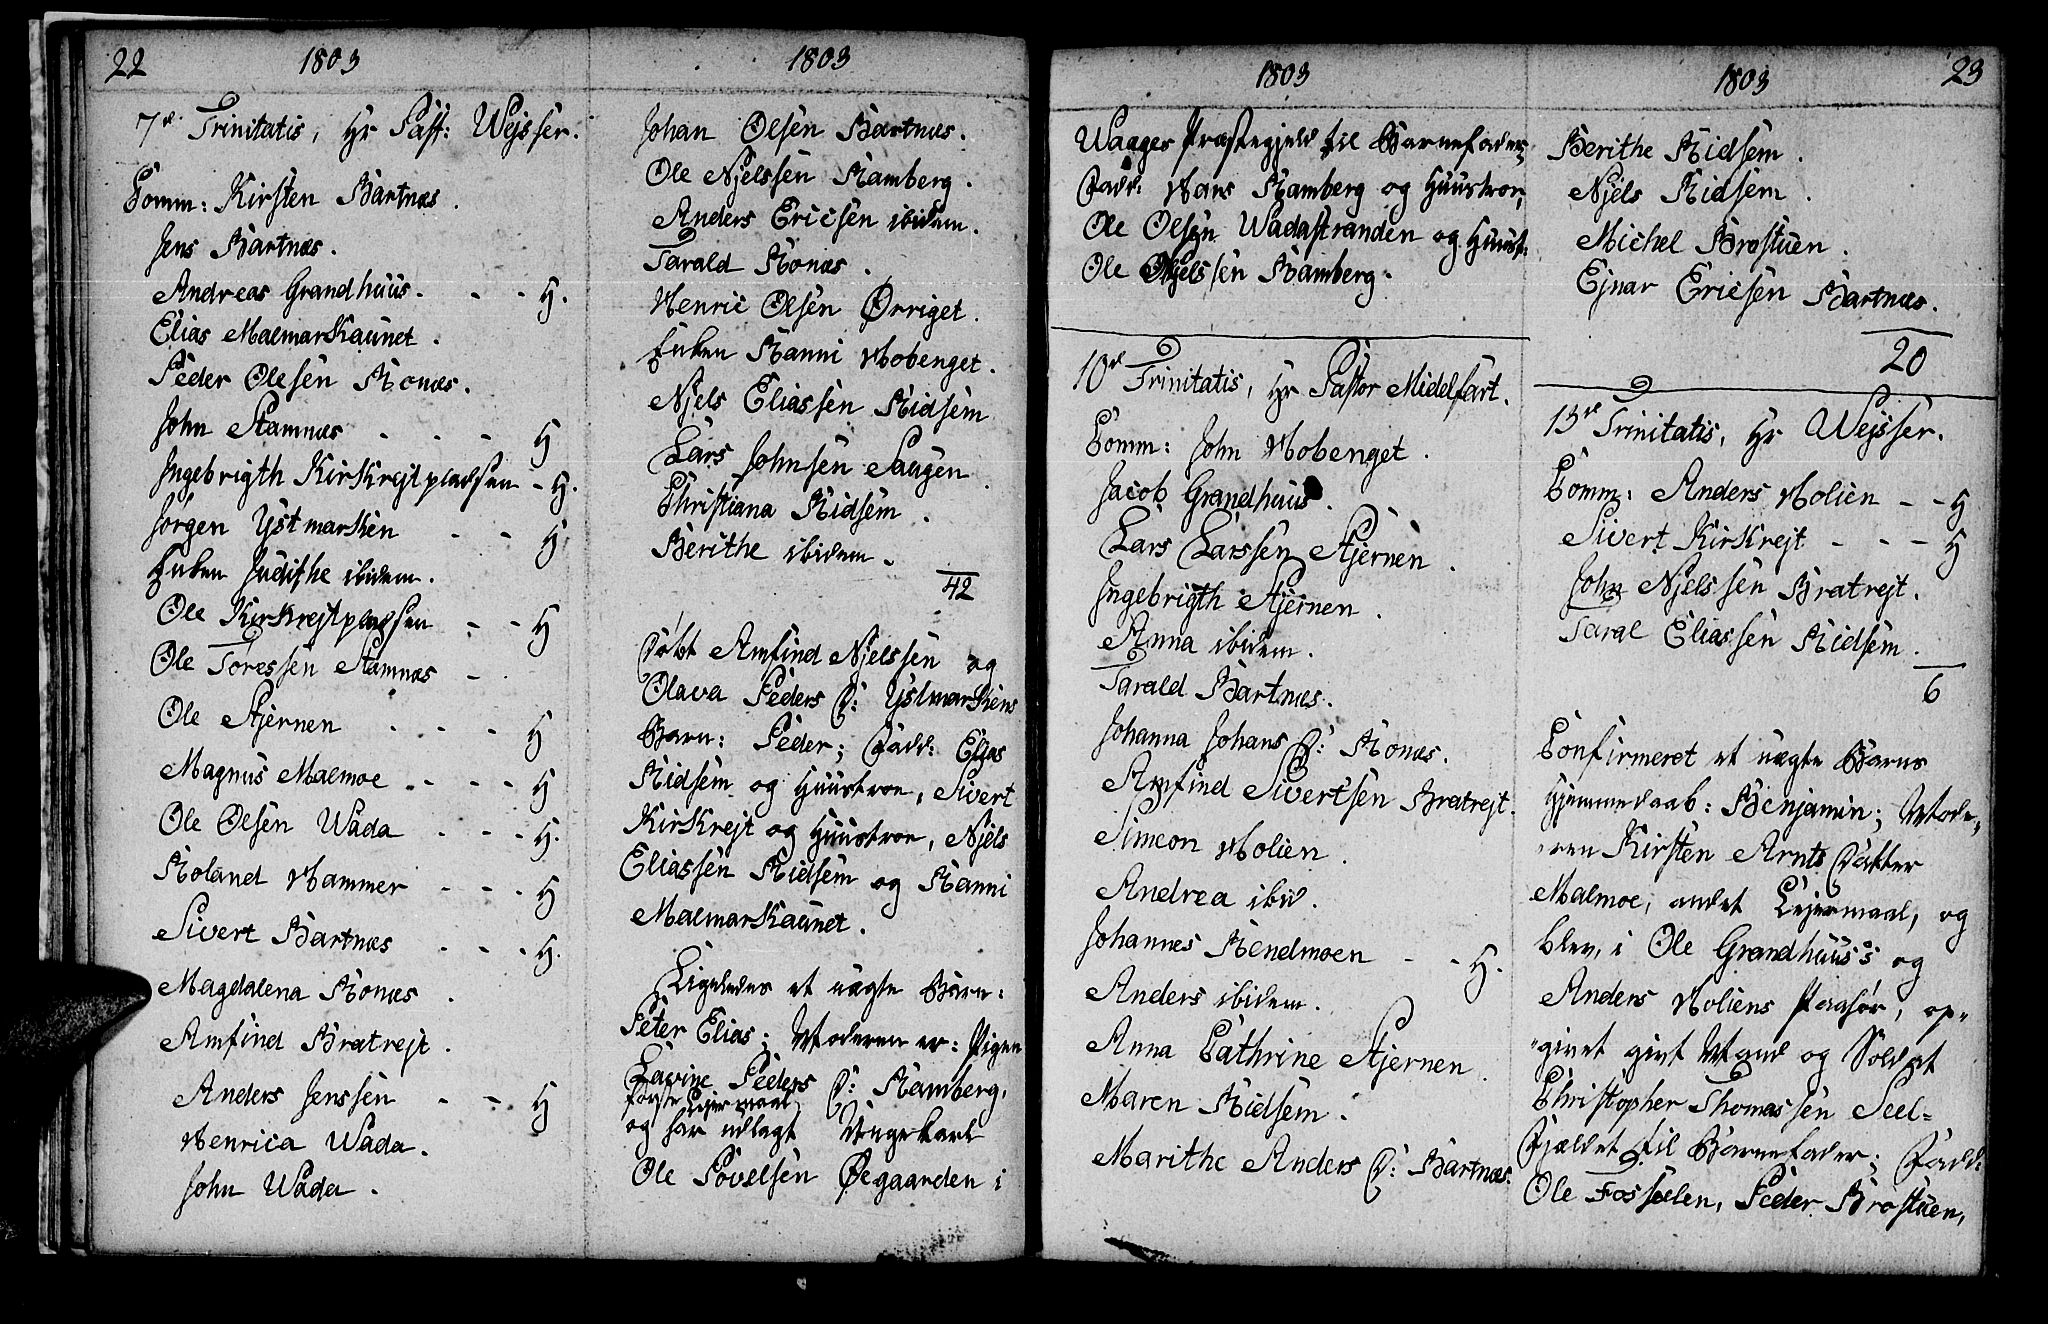 22
1803
7de Trinitatis, Hr Past: Wejsser.
Comm: Kirsten Bartnæs.
Jens Bartnæs.
Andreas Grandhuus. - - H.
Elias Malmarkaunet.
Peder Olesen Ronæs.
John Stamnæs - - - H
Ingebrigth Kirkrejtpladsen - H.
Jørgen Ystmarken - - H
Enken Judithe ibidem.
Ole Kirkrejtpladsen - - H
Ole Toressen Stamnæs -
Ole Stjernen - - - H
Magnus Malmoe - - - H
Ole Olsen Wada - - - H.
Roland Hammer - - - H
Sivert Bartnæs - - - H.
Magdalena Ronæs.
Amfind Bratrejt.
Anders Jenssen - - H
Henrica Wada.
John Wada.
1803
Johan Olsen Bartnæs.
Ole Njelssen Ramberg.
Anders Ericsen ibidem.
Tarald Ronæs.
Henric Olsen Ørriget.
Enken Ranni Mobenget.
Njels Eliassen Ridsem
Lars Johnsen Saugen.
Christiana Ridsem.
Berithe ibidem.
42
Døbt Amfind Njelssen og
Olava Peders D: Ystmarkens
Barn: Peder; Fadd: Elias
Ridsem og Huustroe, Sivert
Kirkrejt og Huustroe, Njels
Eliassen Ridsem og Ranni
Malmarkaunet.
Ligeledes et uægte Barn:
Peter Elias; Moderen er: Pigen
Lavine Peders D: Ramberg,
første Lejermaal
og har udlagt Ungekarl
Ole Povelsen Øegaarden i
1803
Waages Præstegjeld til Barnefader;
Fadd: Hans Ramberg og Huustroe,
Ole Olsen Wadastranden og Huust:
Ole Njelssen Ramberg.
10de Trinitatis, Hr Pastor Middelfart.
Comm: John Mobenget.
Jacob Grandhuus.
Lars Larssen Stjernen.
Ingebrigth Stjernen.
Anna ibidem.
Tarald Bartnæs.
Johanna Johans D: Ronæs.
Amfind Sivertsen Bratrejt.
Simeon Molien.
Andrea ibid.
Johannes Rendmoen - - H.
Anders ibidem.
Anna Cathrine Stjernen.
Maren Ridsem.
Marithe Anders D: Bartnæs.
1803
23
Berithe Ridsem.
Njels Ridsem.
Michel Brostuen.
Ejnar Ericsen Bartnæs.
20
13de Trinitatis, Hr Wejsser.
Comm: Anders Molien - - H
Sivert Kirkrejt - - - H
John Njelssen Bratrejt.
Taral Eliassen Ridsem.
6
Confirmeret et uægte Barns
Hjemmedaab: Benjamin; Mode-
ren Kirsten Arnts Datter
Malmoe, andet Lejermaal, og
blev, i Ole Grandhuus's og
Anders Moliens Paahør, op-
givet givt Mand og Soldat
Christopher Thomassen Seel-
Fjældet til Barnefader; Fadd:
Ole Fosseelen, Peder Brostuen,